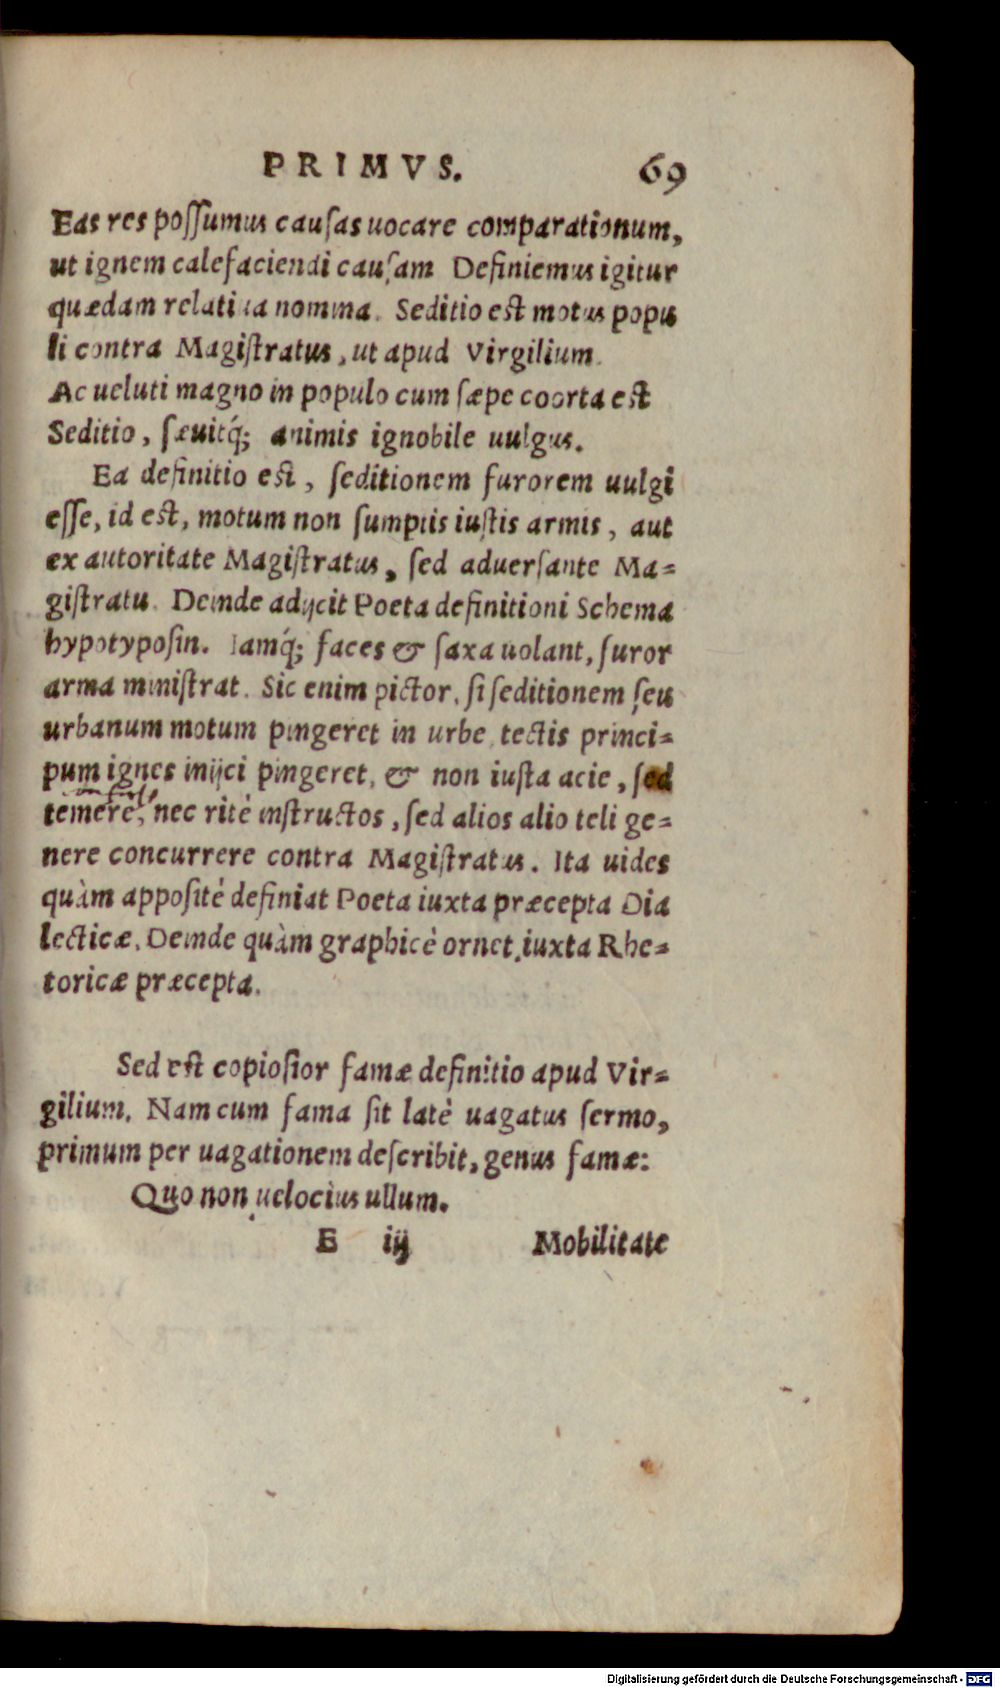 PRIMVS. 69
Eas res poſſumus cauſas uocare comparationum,
ut ignem calefaciendi cauſam Definiemus igitur
quædam relatiua nomina. Seditio est motus popu
li contra Magiſtratus, ut apud Virgilium.
Ac ueluti magno in populo cum ſæpe coorta est
Seditio, ſæuitq́; animis ignobile uulgus.
Ea definitio est, ſeditionem furorem uulgi
eſſe, id est, motum non ſumptis iuſtis armis, aut
ex autoritate Magiſtratus, ſed aduerſante Ma-
giſtratu. Deinde adijcit Poeta definitioni Schema
hypotypoſin. Iamq́; faces & ſaxa uolant, furor
arma miniſtrat. Sic enim pictor, ſi ſeditionem ſeu
urbanum motum pingeret in urbe, tectis princi-
pum ignes inijci pingeret, & non iuſta acie, ſed
temerè, nec ritè inſtructos, ſed alios alio teli ge-
nere concurrere contra Magiſtratus. Ita uides
quàm appoſitè definiat Poeta iuxta præcepta Dia
lecticæ. Deinde quàm graphicè ornet, iuxta Rhe-
toricæ præcepta.
Sed est copioſior famæ definitio apud Vir-
gilium. Nam cum fama ſit latè uagatus ſermo,
primum per uagationem deſcribit, genus famæ:
Quo non uelocius ullum.
E iij Mobilitate
Digitalisierung gefördert durch die Deutsche Forschungsgemeinschaft - DFG